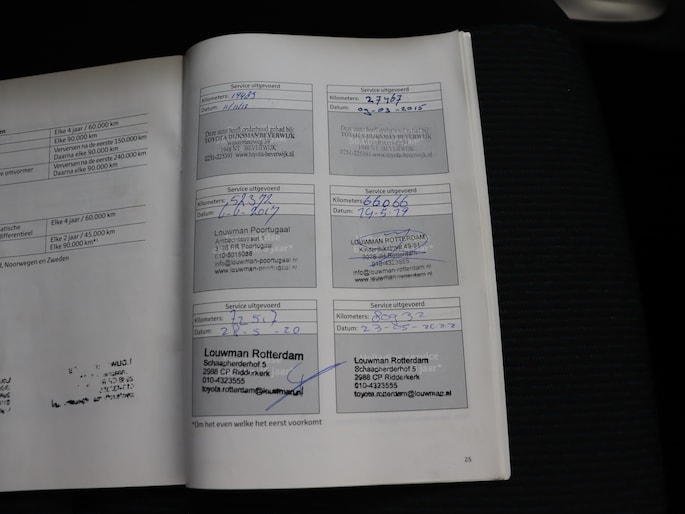 Elke 4 jaar / 60.000 km
Elke 90.000 km
Verversen na de eerste 150.000 km
Daarna elke 90.000 km
omvormer
Verversen na de eerste 240.000 km
Daarna elke 90.000 km
Elke 4 jaar / 60.000 km
differentieel
Elke 2 jaar / 45.000 km
Elke 90.000 km*¹
Noorwegen en Zweden
Service uitgevoerd
Kilometers:
Datum: 11/11/13
Deze auto heeft onderhoud gehad bij:
TOYOTA DIJKSMAN BEVERWIJK
Wijkermeerweg 39
1948 NT BEVERWIJK
0251-225591 www.toyota-beverwijk.nl
Service uitgevoerd
Kilometers: 27467
Datum: 09-03-2015
Deze auto heeft onderhoud gehad bij:
TOYOTA DIJKSMAN BEVERWIJK
1948 NT BEVERWIJK
www.toyota-beverwijk.nl
Service uitgevoerd
Kilometers: 52372
Datum: 6-6-2017
Louwman Poortugaal
Ambachtsstraat 1
Poortugaal
010-5015088
info@louwman-poortugaal.nl
www.louwman-poortugaal.nl
Service uitgevoerd
Kilometers: 66066
Datum:
LOUWMAN ROTTERDAM
Rotterdam
010-4323555
info@louwman-rotterdam.nl
www.louwman-rotterdam.nl
Service uitgevoerd
Kilometers: 72517
Datum: 28-5-20
Louwman Rotterdam
Schaapherderhof 5
2988 CP Ridderkerk
010-4323555
toyota.rotterdam@louwman.nl
Service uitgevoerd
Kilometers: 80932
Datum: 23-05-2022
Louwman Rotterdam
Schaapherderhof 5
2988 CP Ridderkerk
010-4323555
toyota.rotterdam@louwman.nl
*Om het even welke het eerst voorkomt
25